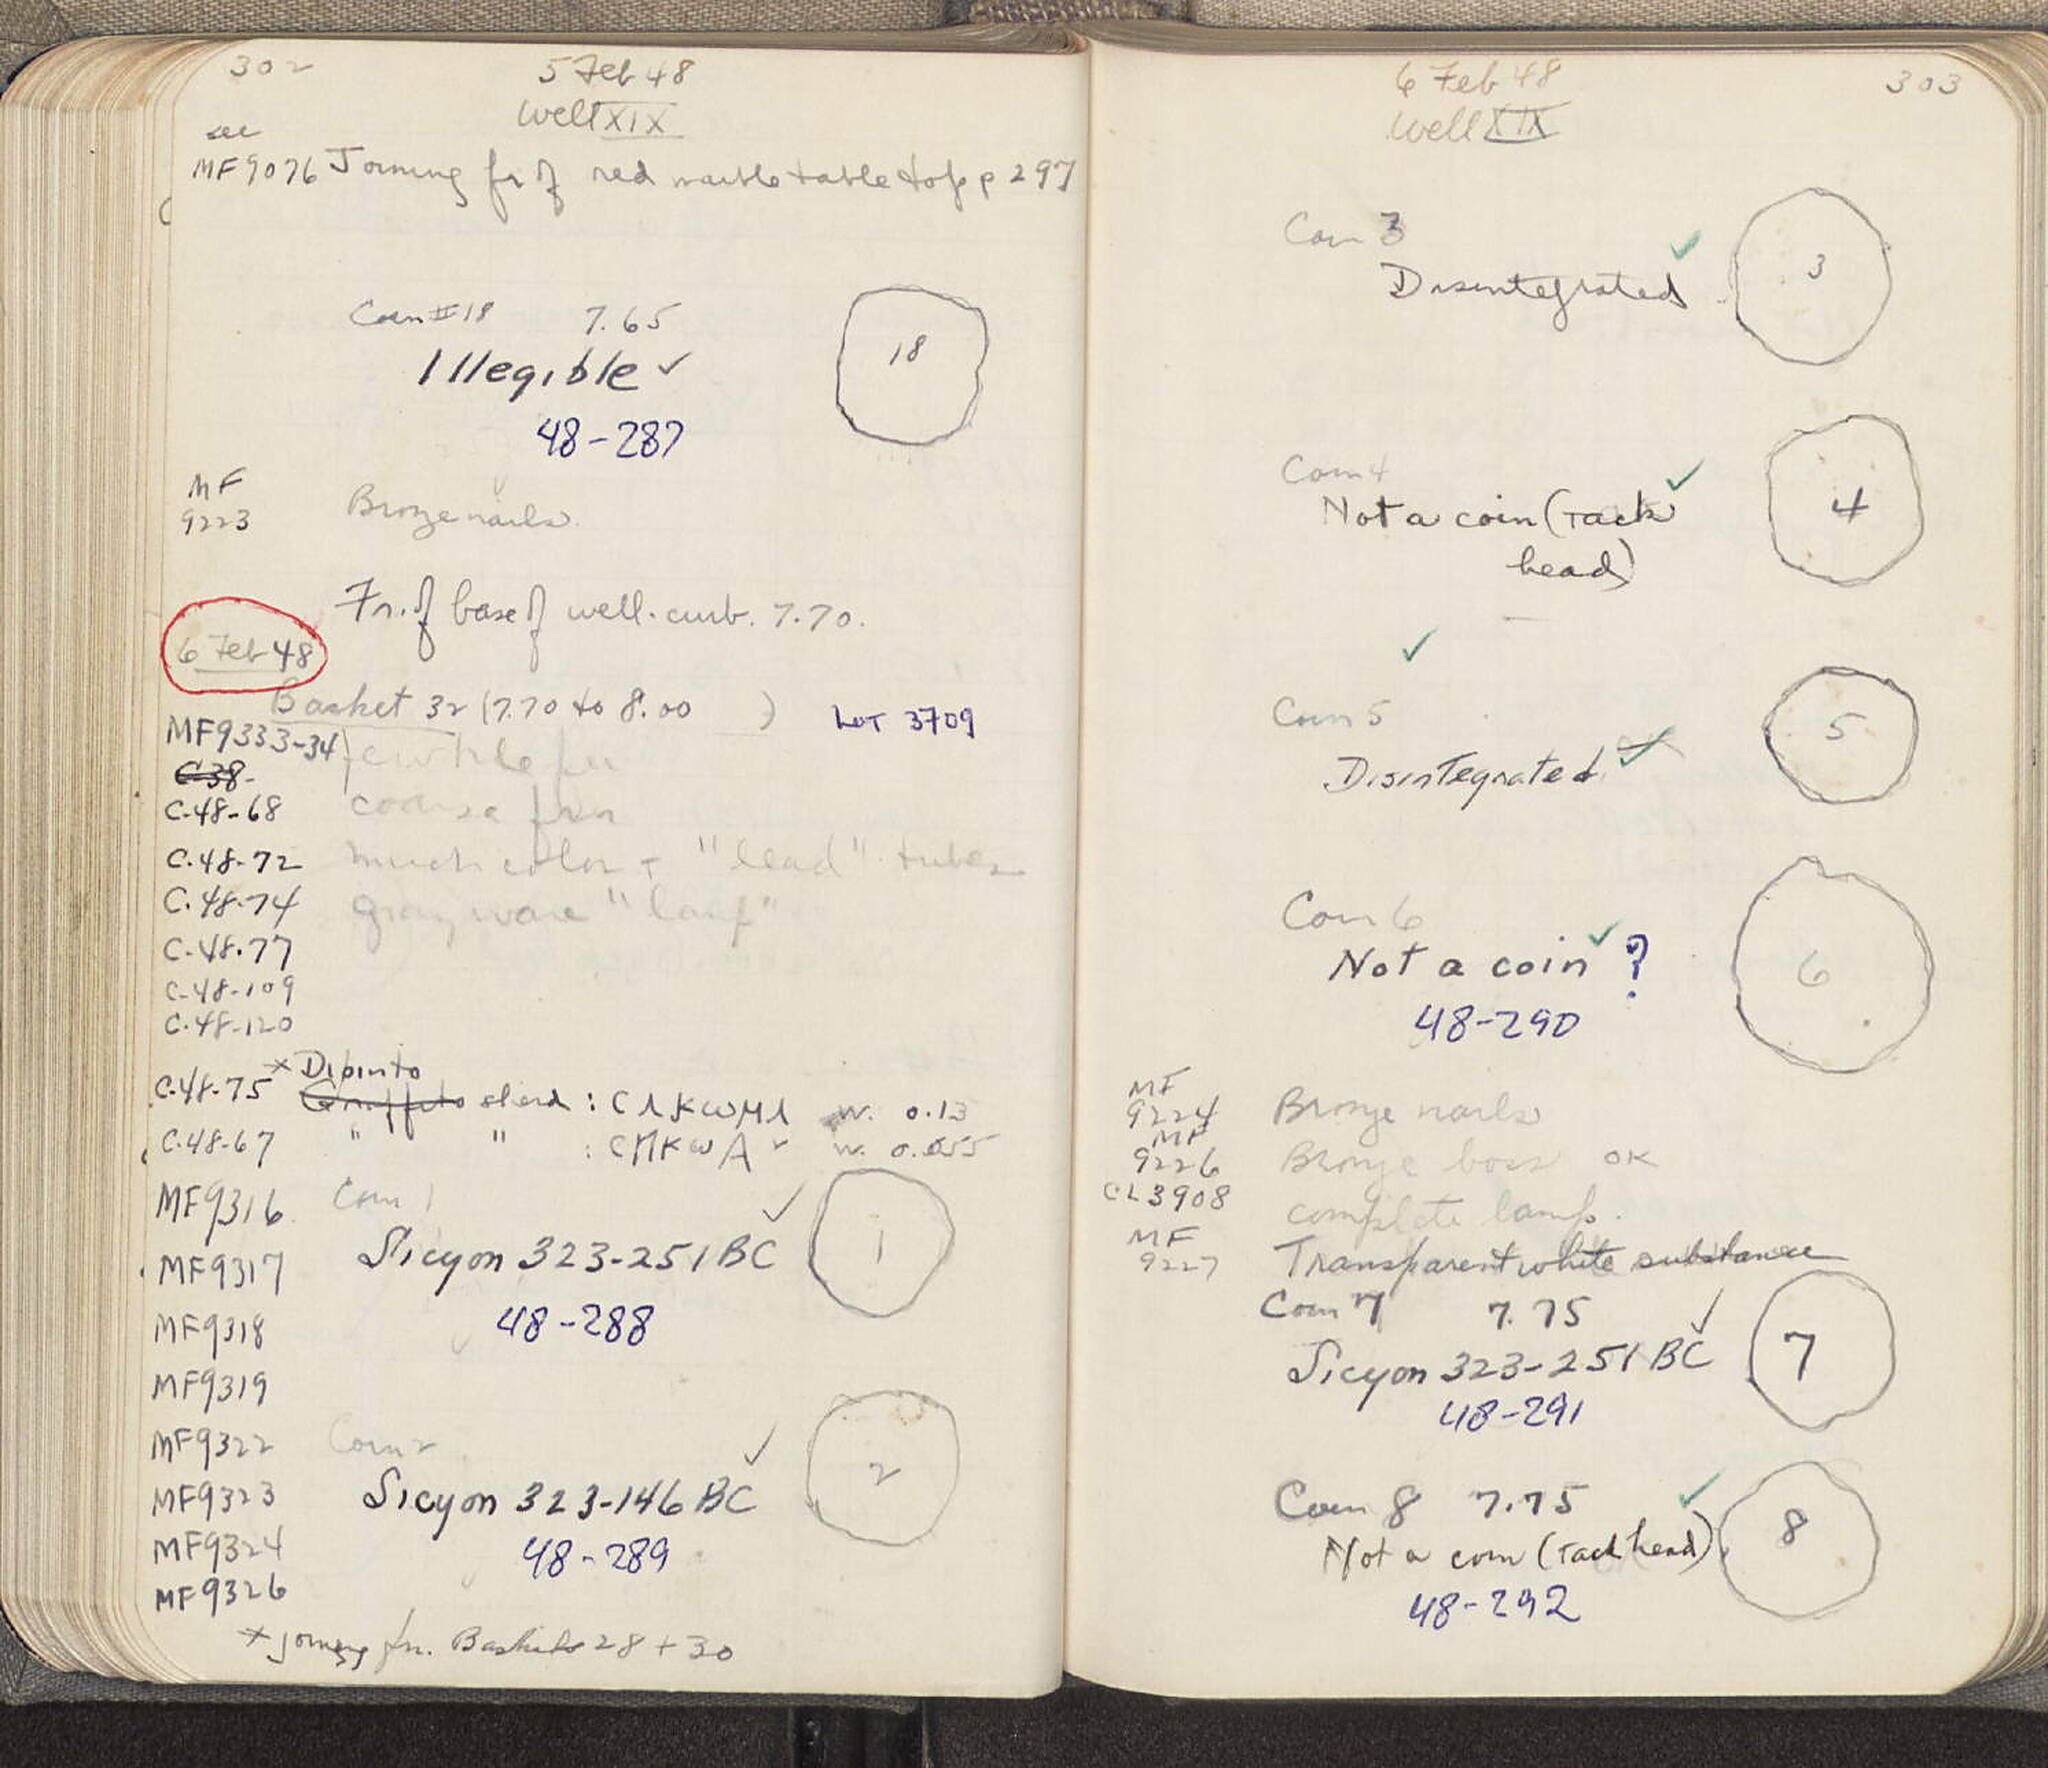 302
5 Feb 48
Well XIX
see
MF9076 Joining fr of red marble table top p 297
Coin #18 7.65
18
Illegible ✓
48-287
MF
9223 Bronze nails
Fr. of base of well-curb. 7.70.
6 Feb 48
Basket 32 (7.70 to 8.00 ) Lot 3709
MF9333-34 few tile frr
C-38-
C-48-68 coarse frr
C-48-72 much color + "lead" tubes
C-48-74 gray ware "lamp"
C-48-77
C-48-109
C-48-120
× Dipinto
C-48-75 Graffito sherd : CΛKWMΛ w. 0.13
C-48-67 " " : CMKWA w. 0.055
MF9316 Coin 1
1
MF9317 Sicyon 323-251 BC ✓
MF9318 48-288
MF9319
MF9322 Coin 2
2
MF9323 Sicyon 323-146 BC ✓
MF9324 48-289
MF9326
× joining fr. Baskets 28 + 30
6 Feb 48
303
Well XIX
Coin 3
3
Disintegrated ✓
Coin 4
4
Not a coin (Tack ✓
head)
✓
Coin 5
5
Disintegrated ✓
Coin 6
6
Not a coin ✓ ?
48-290
MF
9224 Bronze nails
MF
9226 Bronze boss OK
CL3908 complete lamp.
MF
9227 Transparent white substance
Coin 7 7.75
7
Sicyon 323-251 BC ✓
48-291
Coin 8 7.75 ✓
8
Not a coin (Tack head)
48-292